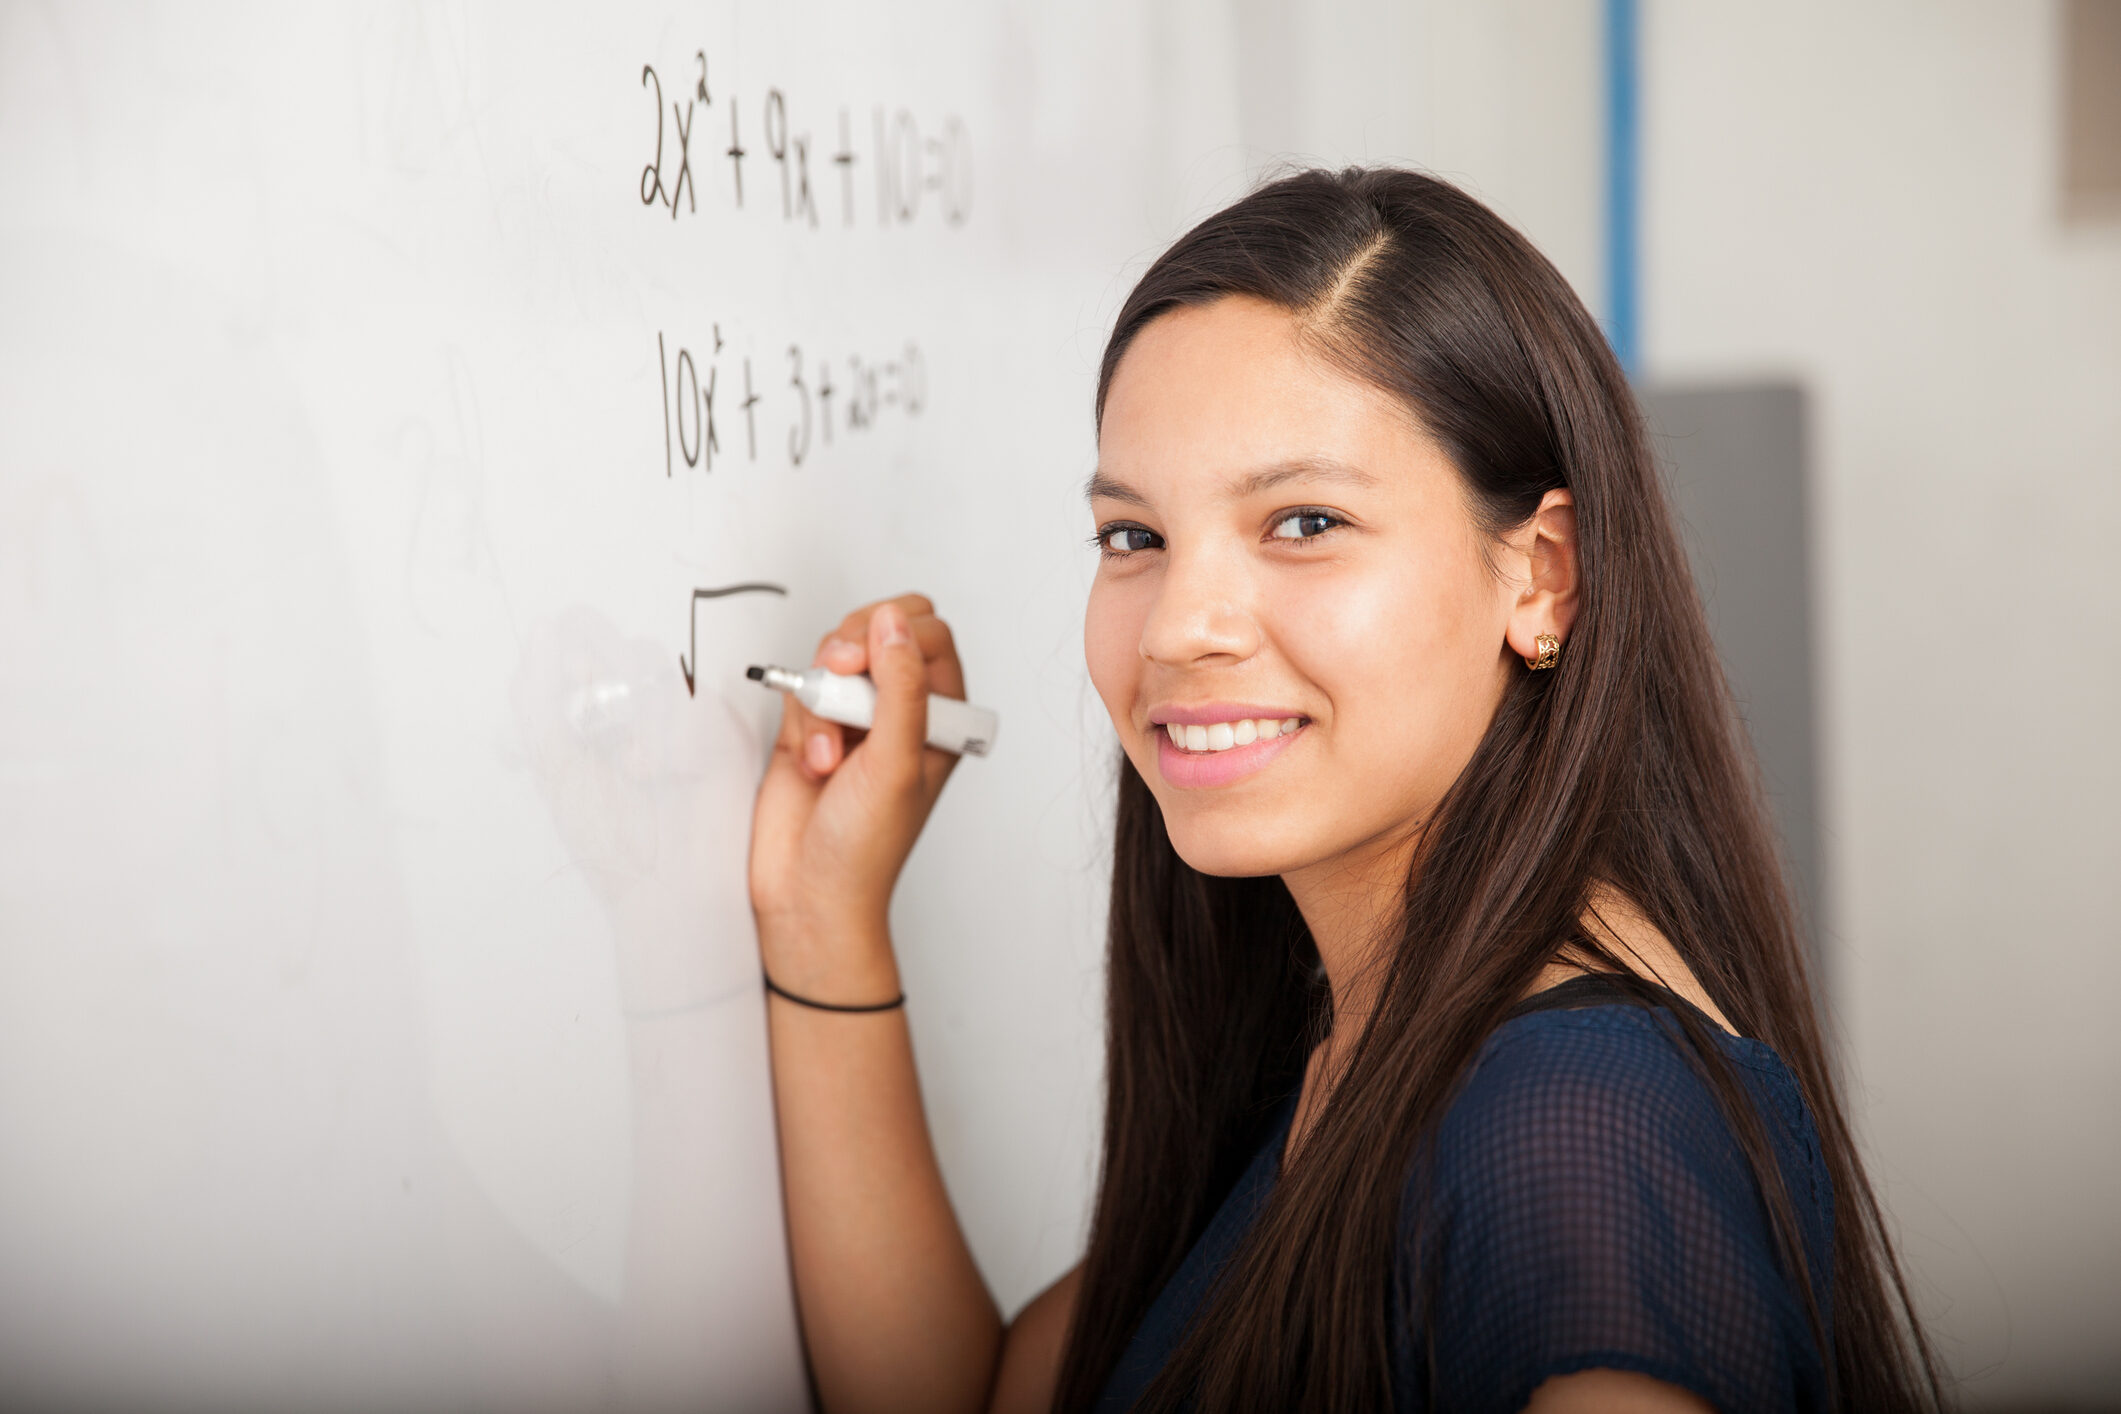 2x² + 9x + 10 = 0
10x² + 3 + 2x = 0
√